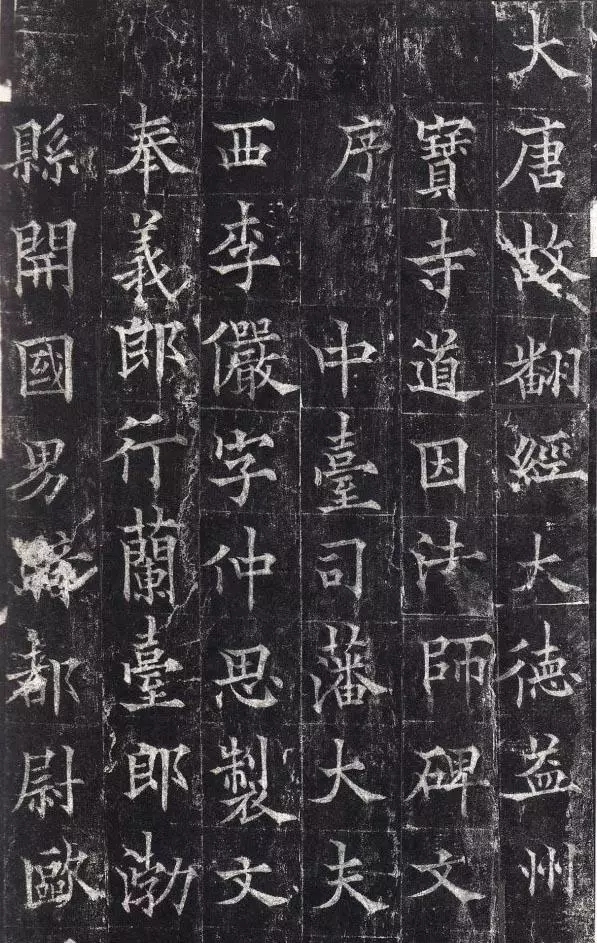 大唐故翻經大德益州
寶寺道因法師碑文
序 中臺司藩大夫
西李儼字仲思製文
奉義郎行蘭臺郎渤
縣開國男都尉歐